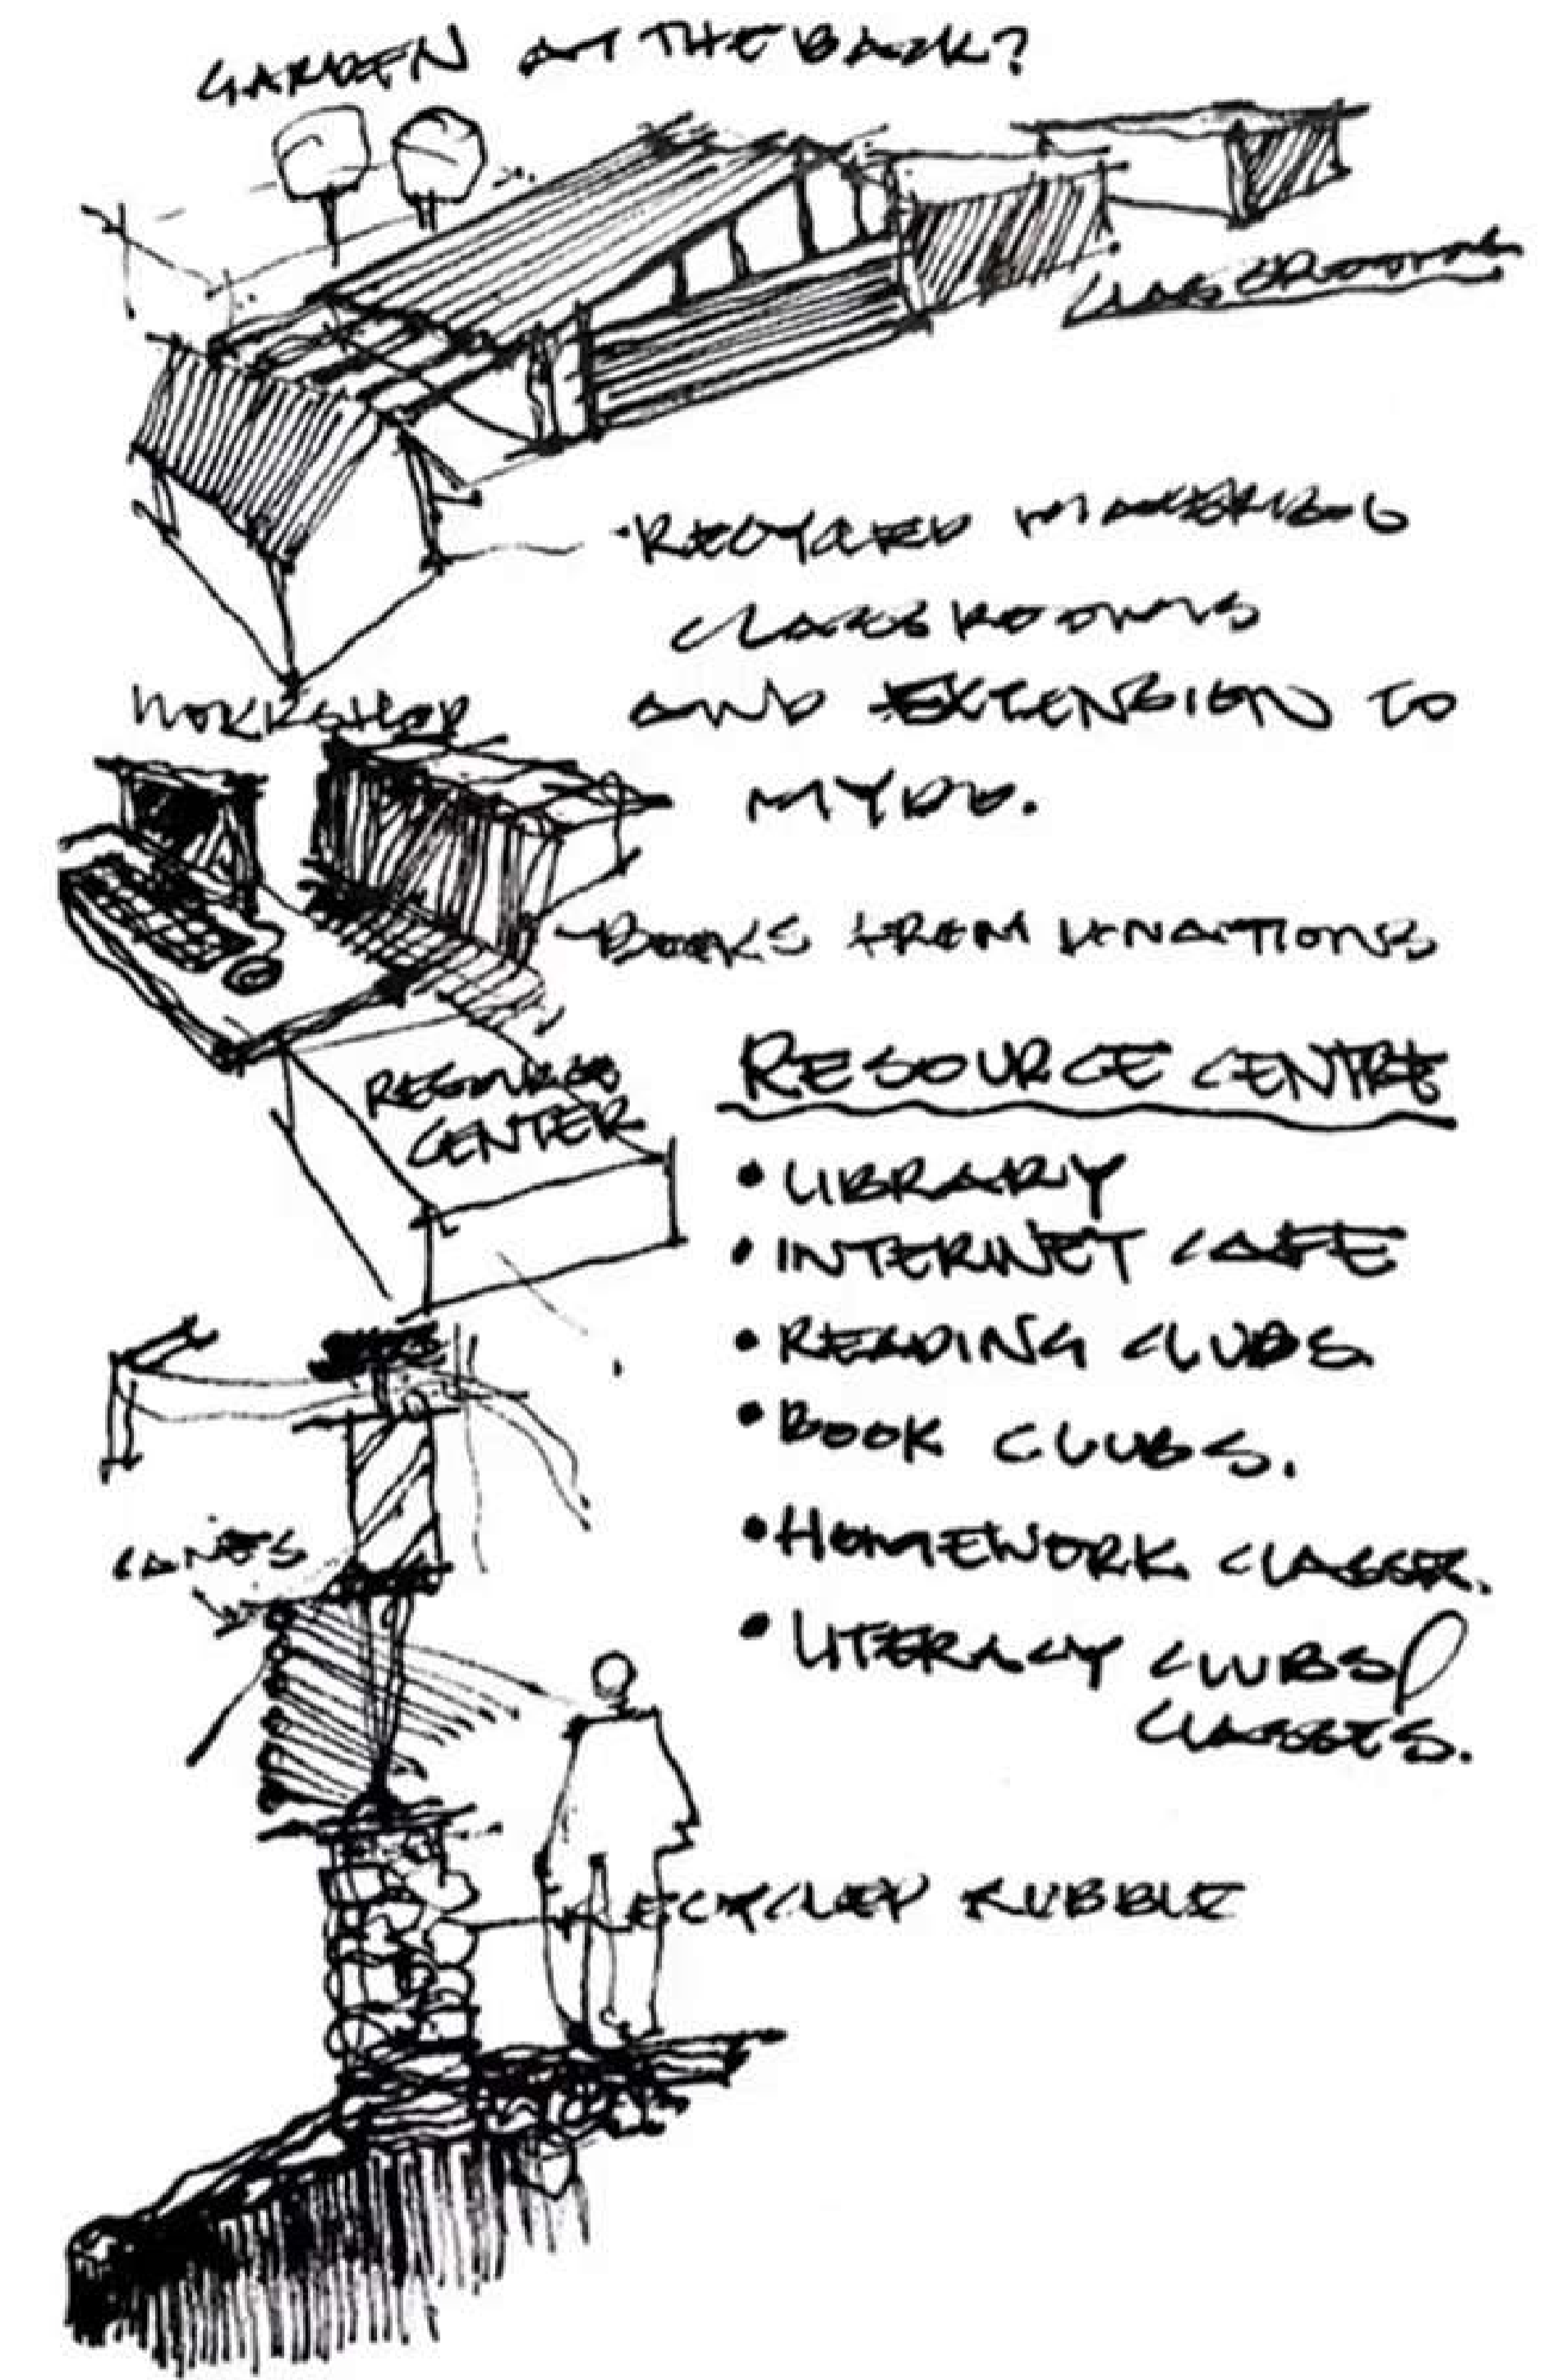 GARDEN AT THE BACK?
CLASSROOMS
RECYCLED MATERIAL
CLASSROOMS
AND EXTENSION TO
WORKSHOP
BOOKS FROM DONATIONS
RESOURCE
CENTER
RESOURCE CENTRE
• LIBRARY
• INTERNET CAFE
• READING CLUBS.
• BOOK CLUBS.
• HOMEWORK CLASSES.
• LITERACY CLUBS/
CLASSES.
CANES
RECYCLED RUBBLE